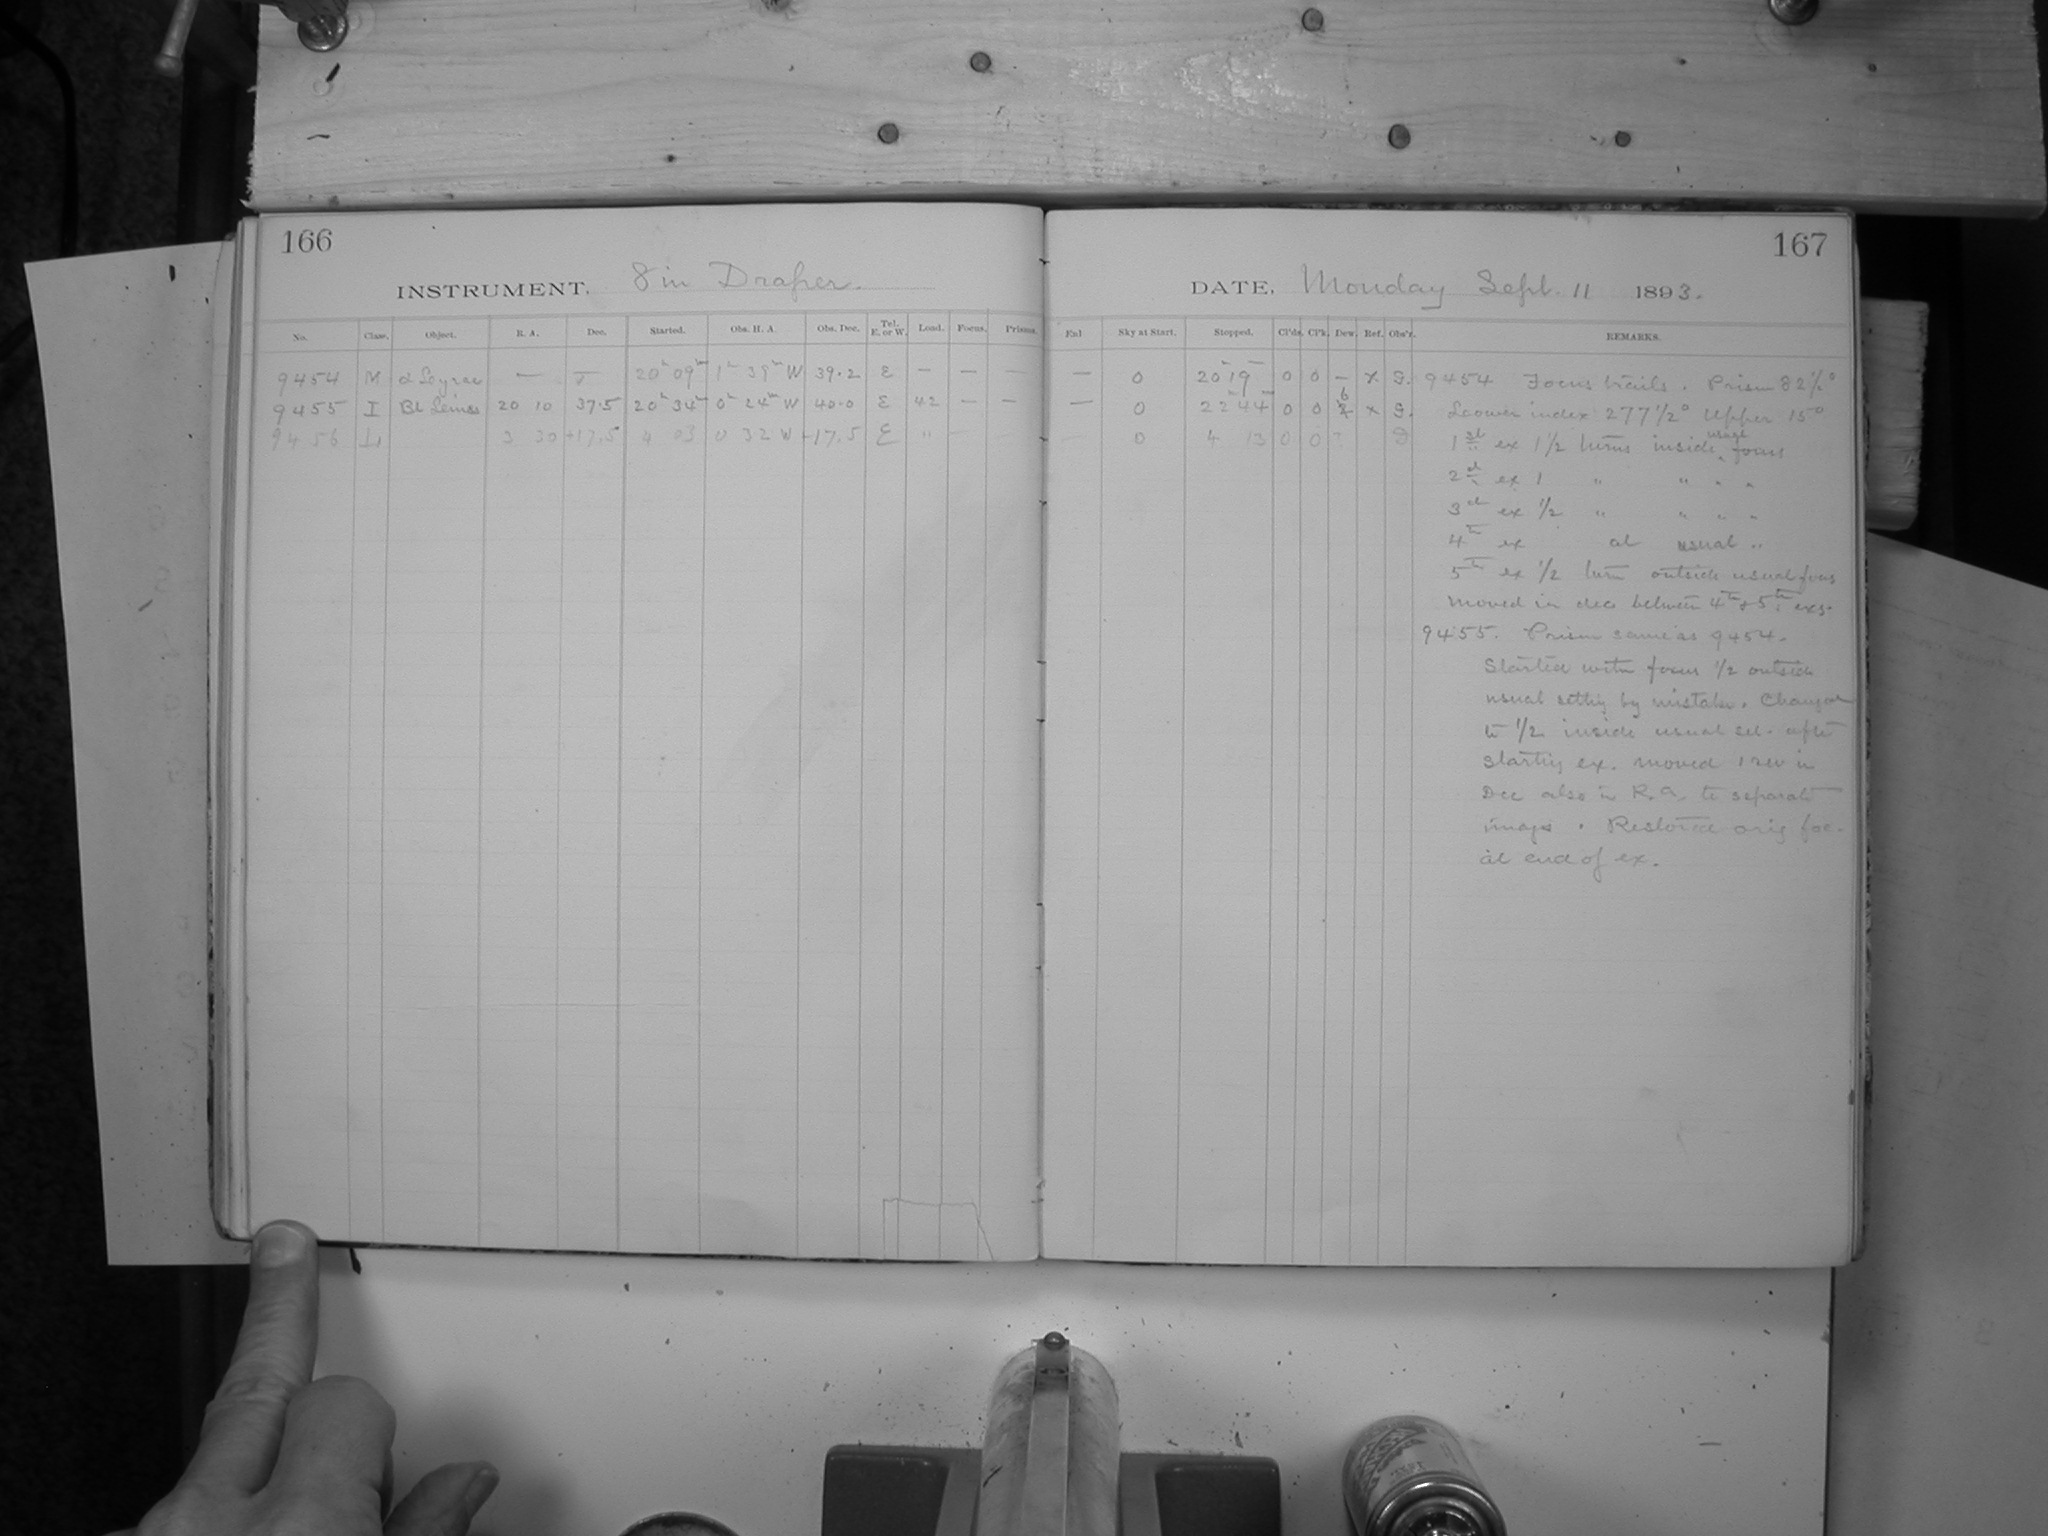 166
INSTRUMENT. 8 in Draper.
No. Class. Object. R. A. Dec. Started. Obs. H. A. Obs. Dec. Tel. E. or W. Load. Focus. Prisms.
9454 M α Lyrae — — 20h 09m 1h 39m W 39.2 E — — —
9455 I Bt Lines 20 10 37.5 20h 34m 0h 24m W 40.0 E 42 — —
9456 L 3 30 +17.5 4 03 0 32 W +17.5 E " — —
167
DATE, Monday Sept. 11 1893.
Exl Sky at Start. Stopped. Cl'ds. Cl'k. Dew. Ref. Obs'r. REMARKS.
— 0 20h 19m 0 0 — x G. 9454 Focus trails. Prism 82½°
— 0 22h 44m 0 0 6 x G. Lower index 277½° Upper 15°
— 0 4 13 0 0 ? 1st ex 1½ turns inside usual focus
2d ex 1 " " " "
3d ex ½ " " " "
4th ex at usual "
5th ex ½ turn outside usual focus
Moved in dec between 4th & 5th exs.
9455. Prism same as 9454.
Started with focus ½ outside
usual setting by mistake. Changed
to ½ inside usual set. after
starting ex. moved 1 rev in
Dec also in R.A. to separate
images. Restored orig foc.
at end of ex.